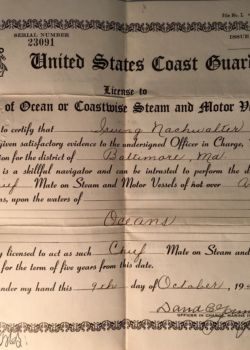 File No. 1.
SERIAL NUMBER ISSUE
23091
United States Coast Guar
License to
of Ocean or Coastwise Steam and Motor V
to certify that Irving Nachwalter
given satisfactory evidence to the undersigned Officer in Charge,
ion for the district of Baltimore, Md
is a skillful navigator and can be intrusted to perform the d
ief Mate on Steam and Motor Vessels of not over A
ns, upon the waters of
Oceans
y licensed to act as such Chief Mate on Steam and
for the term of five years from this date.
under my hand this 9th day of October, 19
OFFICER IN CHARGE,